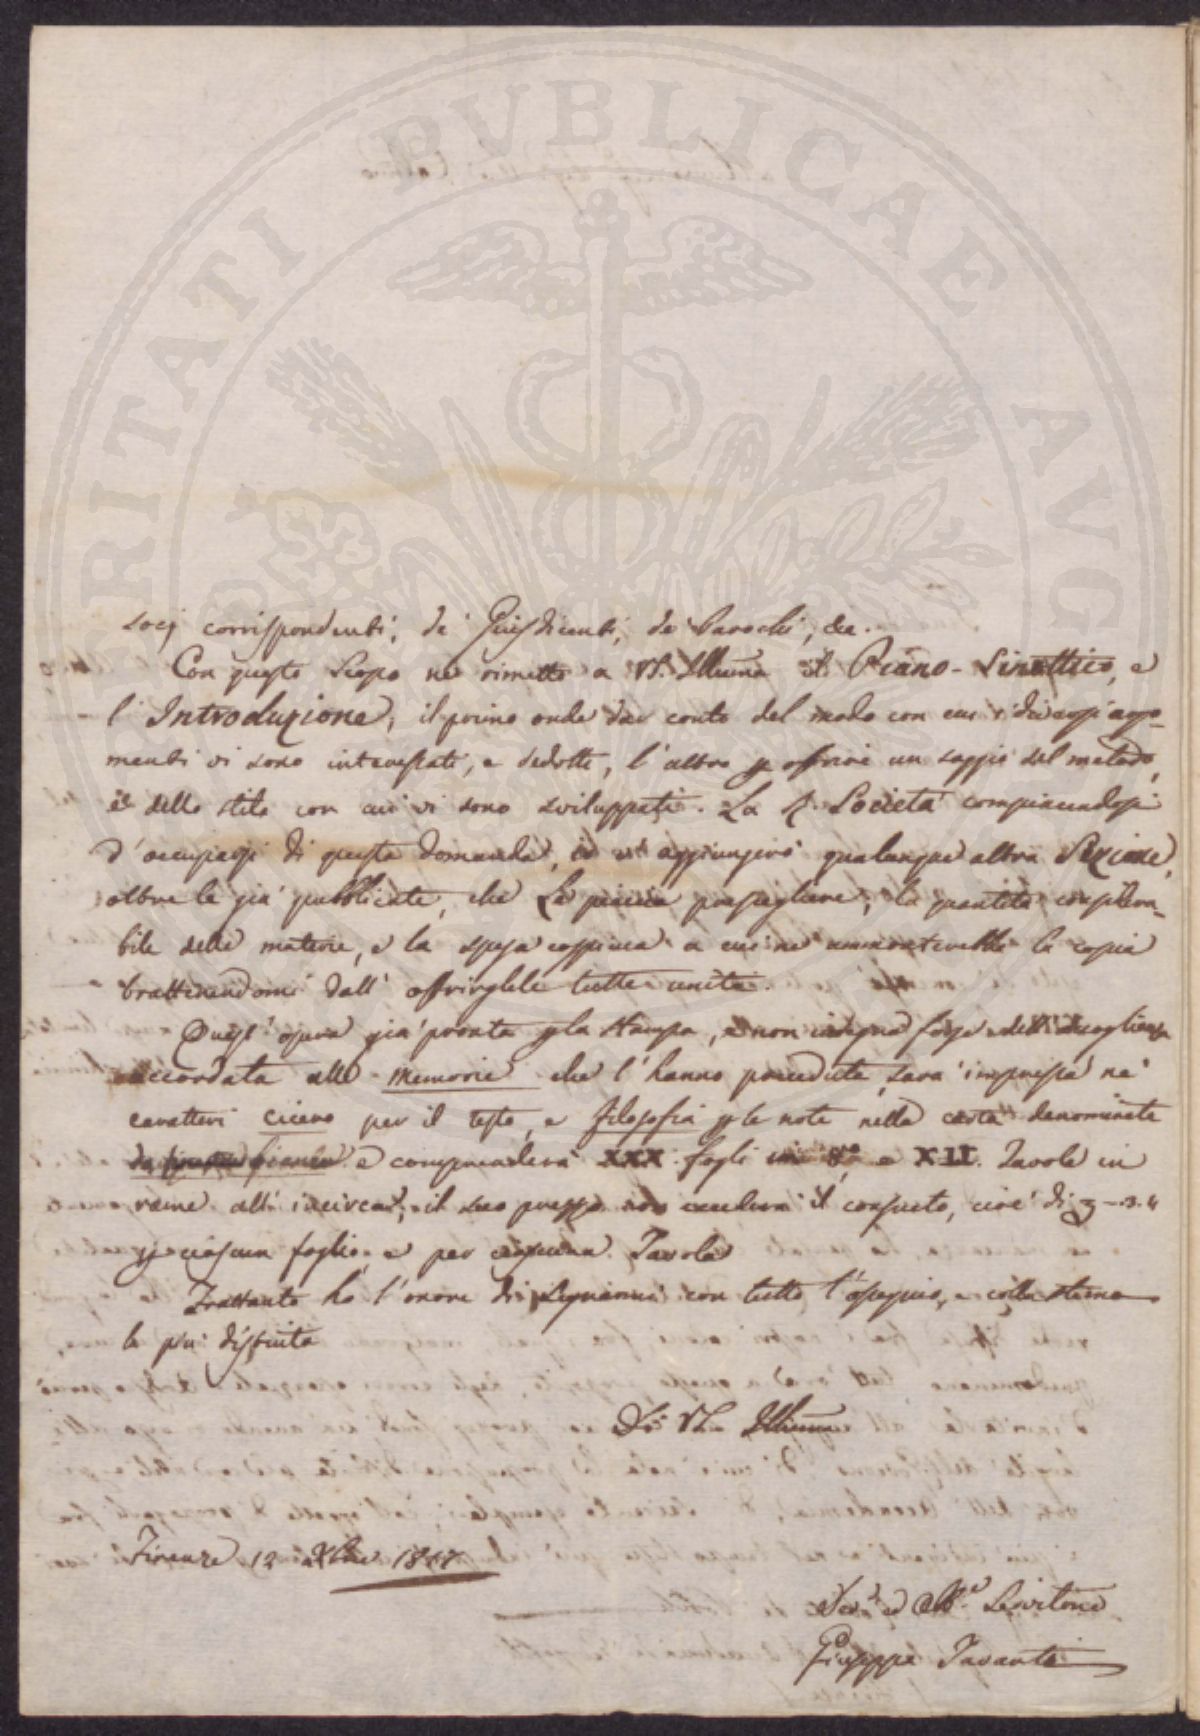 PROSPERITATI PVBLICAE AVG
socj corrispondenti, de' Giusdicenti, de' Parochi, &c.
Con questo scopo ne rimetto a VS. Illma il Piano-Sinottico, e
l'Introduzione, il primo onde dar conto del modo con cui i diversi argo-
menti vi sono intavolati, e dedotti, l'altra p offrire un saggio del metodo,
e dello stile con cui vi sono sviluppati. La R. Società compiacendosi
d'occuparsi di questa domanda, io vi aggiungerò qualunque altra Sezione,
oltre le già pubblicate, che Le piaccia prescegliere, la quantità considera-
bile delle materie, e la spesa cospicua a cui ne ammonterebbe la copia
trattenendomi dall'offrirglele tutte unite.
Quest'opera già pronta p la stampa, e non indegna forse dell'accoglienza
accordata alle Memorie che l'hanno preceduta, sarà impressa ne'
caratteri cicero per il testo, e filosofia p le note nella carta denominata
e comprenderà XXX fogli in 8º e XII. Tavole in
rame all'incirca, il suo prezzo non eccederà il consueto, cioè di 3-
p ciascun foglio, e per ciascuna Tavola
Frattanto ho l'onore di segnarmi con tutto l'ossequio, e colla stima
la più distinta
Di VS. Illma
Firenze 12 Xbre 1817
Dev. ed Obb. Servitore
Giuseppe Tavanti